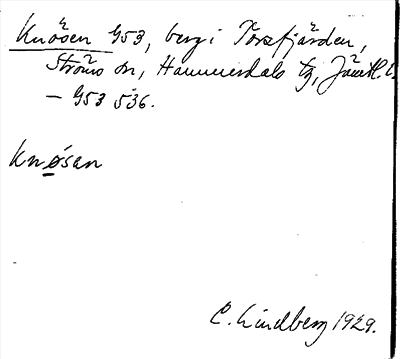 Knösen 953, berg i Torsfjärden,
Ströms sn, Hammerdals tg, Jämtl. l.
– 953 536.
Knøsan
C. Lindberg 1929.